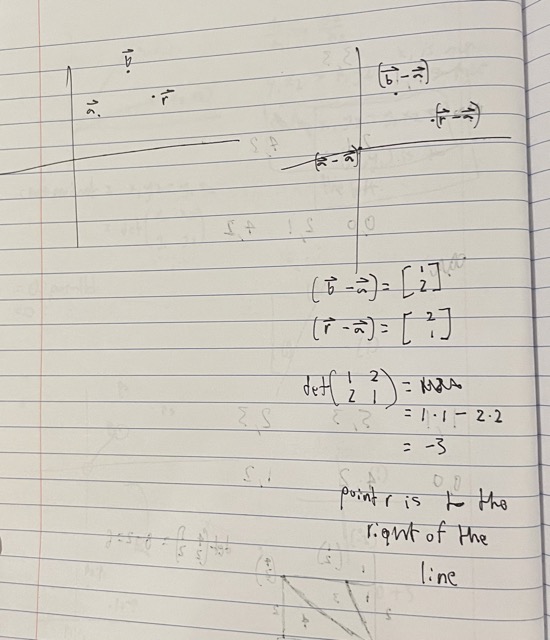 b⃗
a⃗
r⃗
(b⃗ - a⃗)
(r⃗ - a⃗)
(a⃗ - a⃗)
(b⃗ - a⃗) = [1 2]
(r⃗ - a⃗) = [2 1]
det(1 2
2 1) =
= 1·1 - 2·2
= -3
point r is to the
right of the
line